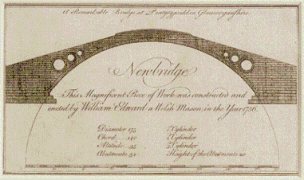 A Remarkable Bridge at Pontypridd in Glamorganshire.
Newbridge
This Magnificent Piece of Work was constructed and
erected by William Edward a Welsh Mason, in the Year 1756.
Diameter 175 Cylinder
Chord 140 Cylinder
Altitude 35 Cylinder
Abutments Height of the Abutments